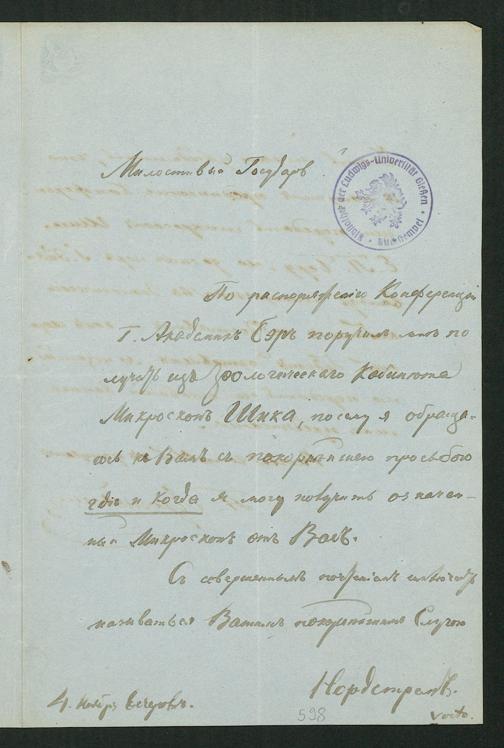 Милостивый Государь
Bibliothek der Ludwigs-Universität Gießen
По распоряженію Конференціи
Г. Академикъ Бэръ поручилъ мнѣ по
лучить изъ Зоологическаго Кабинета
Микроскопъ Шика, посему я обраща-
юсь къ Вамъ съ покорнѣйшею просьбою
гдѣ и когда я могу получить означен-
ный Микроскопъ отъ Васъ.
Съ совершеннымъ почтеніемъ имѣю честь
называться Вашимъ покорнѣйшимъ Слугою
Нордстремъ.
4. Ноябр
598
verto.